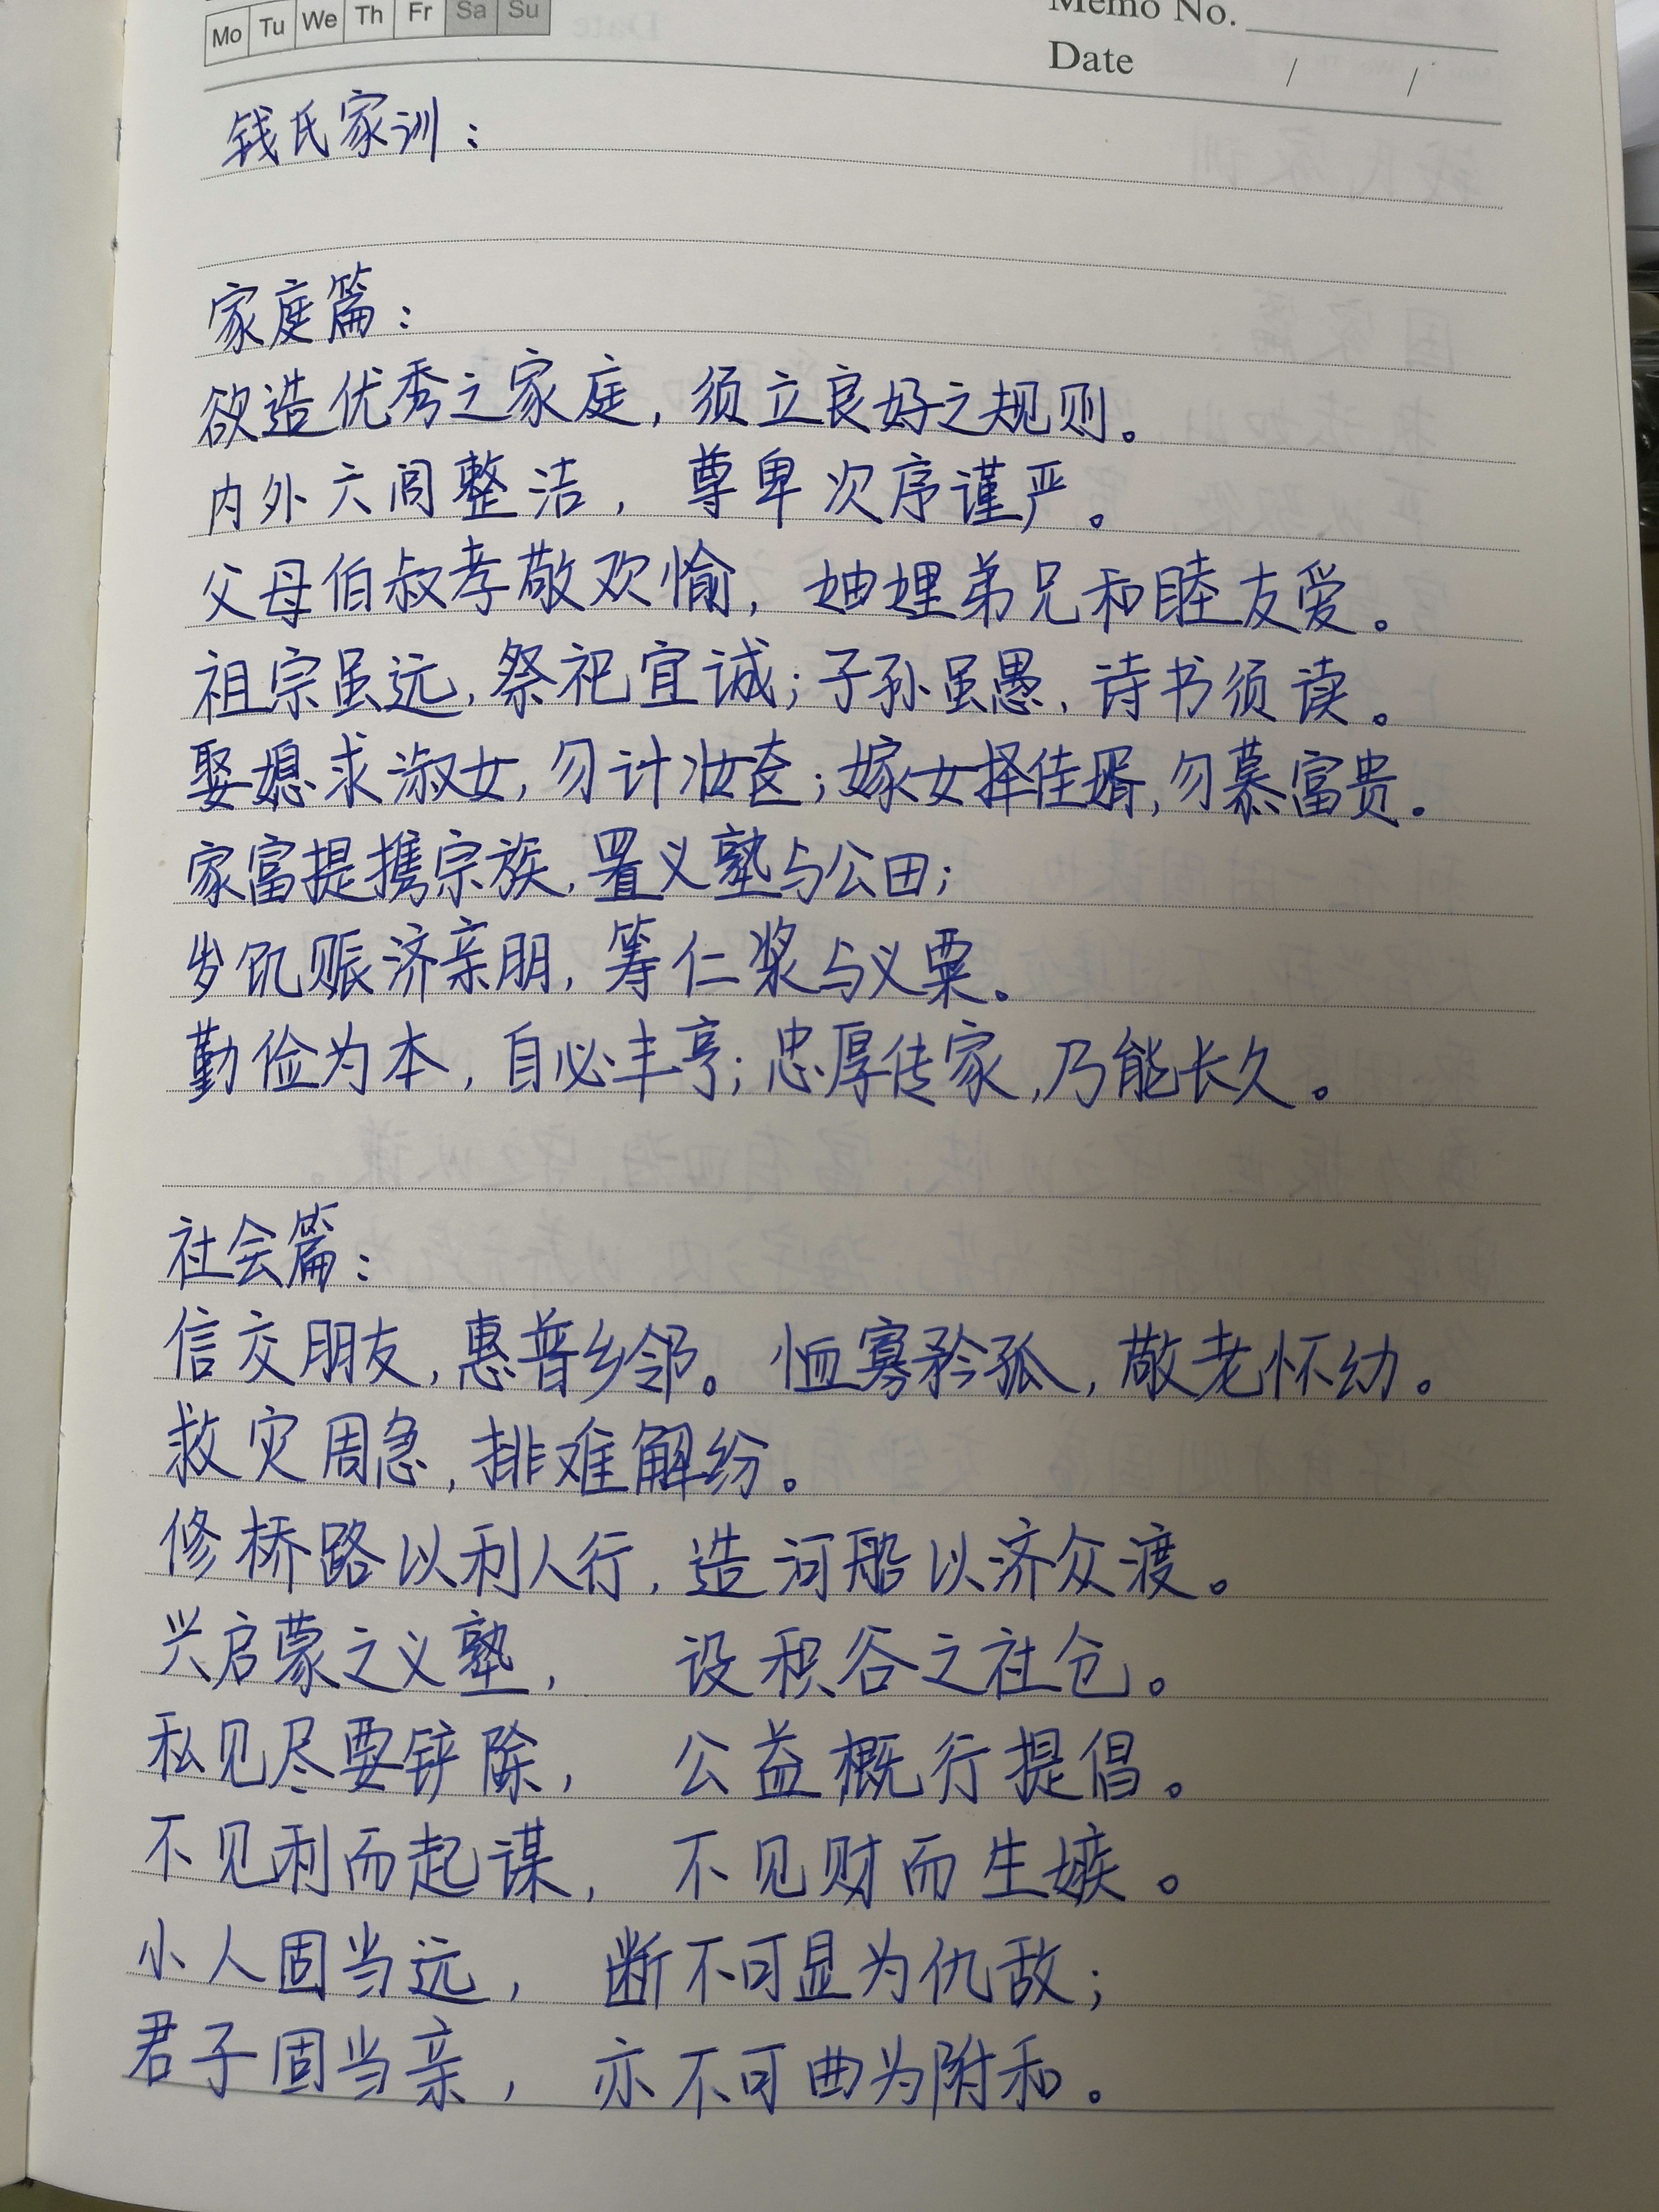 Mo Tu We Th Fr Sa Su
Memo No.
Date / /
钱氏家训：
家庭篇：
欲造优秀之家庭，须立良好之规则。
内外六闾整洁，尊卑次序谨严。
父母伯叔孝敬欢愉，妯娌弟兄和睦友爱。
祖宗虽远，祭祀宜诚；子孙虽愚，诗书须读。
娶媳求淑女，勿计妆奁；嫁女择佳婿，勿慕富贵。
家富提携宗族，置义塾与公田；
岁饥赈济亲朋，筹仁浆与义粟。
勤俭为本，自必丰亨；忠厚传家，乃能长久。
社会篇：
信交朋友，惠普乡邻。恤寡矜孤，敬老怀幼。
救灾周急，排难解纷。
修桥路以利人行，造河船以济众渡。
兴启蒙之义塾，设积谷之社仓。
私见尽要铲除，公益概行提倡。
不见利而起谋，不见财而生嫉。
小人固当远，断不可显为仇敌；
君子固当亲，亦不可曲为附和。